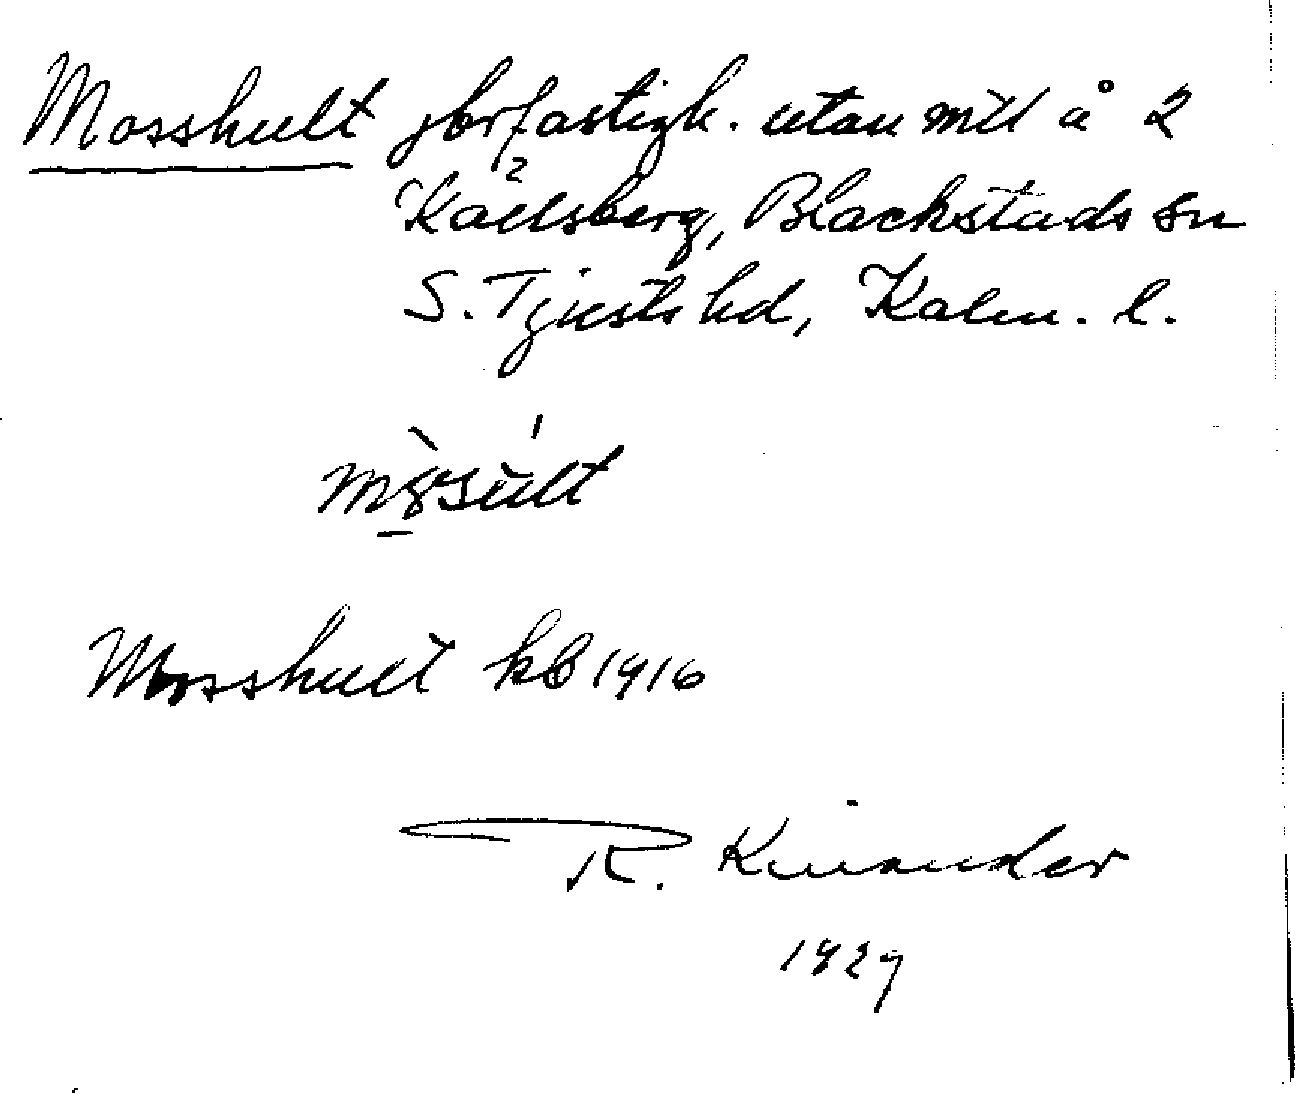 Mosshult jbrfastigh. utan mtl å 2
Källsberg, Blackstads sn
S. Tjusts hd, Kalm. l.
Mosshult kb 1916
R. Kinander
1929